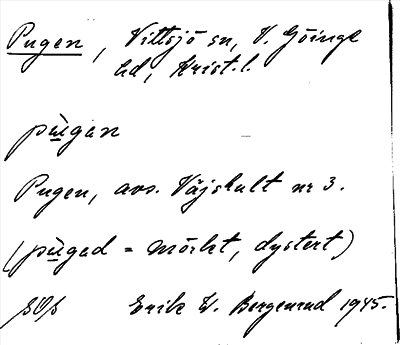 Pugen, Vittsjö sn, V. Göinge
hd, Krist. l.
pùgan
Pugen, avs. Väjshult nr 3.
(pùgad = mörkt, dystert)
Erik W. Bergenrud 1945.